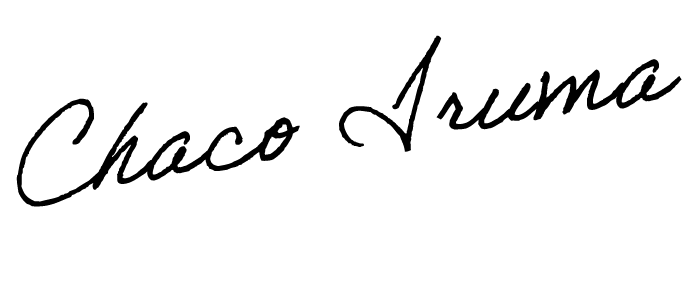 Chaco Iruma